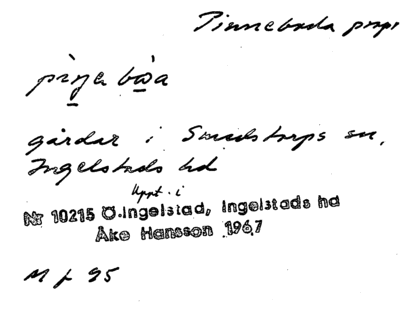 Pinneboda pnpr
piŋe bòa
gårdar i Smedstorps sn,
Ingelstads hd
Uppt. i
Nr 10215 Ö.Ingelstad, Ingelstads hd
Åke Hansson 1967
M f 95